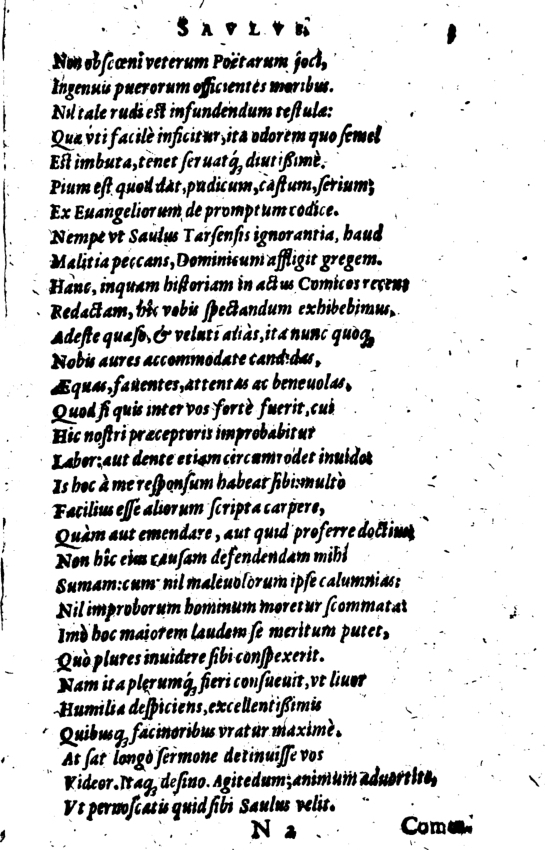 SAVLVS.
Non obscœni veterum Poëtarum joci,
Ingenuis puerorum officientes moribus.
Nil tale rudi est infundendum testulæ:
Quæ vti facilè inficitur, ita odorem quo semel
Est imbuta, tenet seruatq́; diutißimè.
Pium est quod dat, pudicum, castum, serium;
Ex Euangeliorum de promptum codice.
Nempe vt Saulus Tarsensis ignorantia, haud
Malitia peccans, Dominicum affligit gregem.
Hanc, inquam historiam in actus Comicos recens
Redactam, hîc vobis spectandum exhibebimus,
Adeste quæso, & veluti aliàs, ita nunc quoq́;
Nobis aures accommodate candidas,
Æquas, fauentes, attentas ac beneuolas,
Quod si quis inter vos fortè fuerit, cui
Hic nostri præceptoris improbabitur
Labor: aut dente etiam circumrodet inuidos
Is hoc à me responsum habeat sibi: multò
Facilius esse aliorum scripta carpere,
Quàm aut emendare, aut quid proferre doctius,
Non hîc eius causam defendendam mihi
Sumam: cum nil maleuolorum ipse calumnias:
Nil improborum hominum moretur scommata:
Imò hoc maiorem laudem se meritum putet,
Quò plures inuidere sibi conspexerit.
Nam ita plerumq́; fieri consueuit, vt liuor
Humilia despiciens, excellentißimis
Quibusq́; facinoribus vratur maximè.
At sat longo sermone detinuisse vos
Videor. Itaq́; desino. Agitedum; animum aduortite,
Vt pernoscatis quid sibi Saulus velit.
N 2
Comœ.